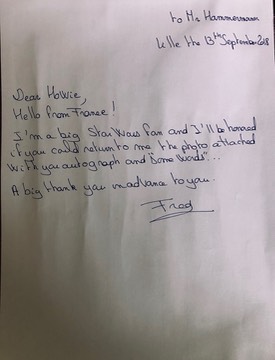 to Mr Hammermann
Lille the 13th September 2018
Dear Howie,
Hello from France!
I'm a big Star Wars fan and I'll be honored
if you could return to me the photo attached
with you autograph and "some words"...
A big thank you in advance to you.
Fred